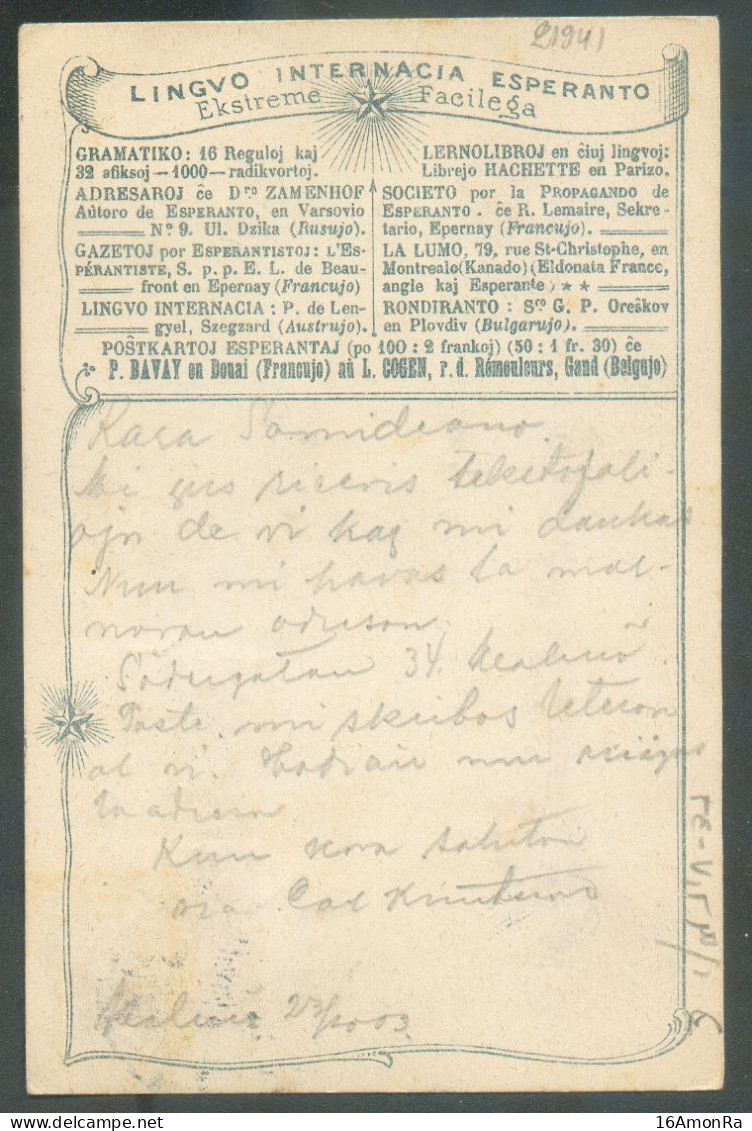 21941
LINGVO INTERNACIA ESPERANTO
Ekstreme Facilega
GRAMATIKO: 16 Reguloj kaj
32 afiksoj — 1000 — radikvortoj.
ADRESARO ĉe Dro ZAMENHOF
Aŭtoro de ESPERANTO, en Varsovio
No 9. Ul. Dzika (Rusujo).
GAZETOJ por ESPERANTISTOJ: L'ES-
PÉRANTISTE, S. p. p. E. L. de Beau-
front en Epernay (Francujo)
LINGVO INTERNACIA: P. de Len-
gyel, Szegzard (Austrujo).
LERNOLIBROJ en ĉiuj lingvoj:
Librejo HACHETTE en Parizo.
SOCIETO por la PROPAGANDO de
ESPERANTO. ĉe R. Lemaire, Sekre-
tario, Epernay (Francujo).
LA LUMO, 79, rue St-Christophe, en
Montrealo (Kanado) (Eldonata France,
angle kaj Esperante) ★ ★
RONDIRANTO: Sro G. P. Oreŝkov
en Plovdiv (Bulgarujo).
POŜTKARTOJ ESPERANTAJ (po 100: 2 frankoj) (50: 1 fr. 30) ĉe
P. BAVAY en Douai (Francujo) aŭ L. COGEN, r. d. Rémouleurs, Gand (Belgujo)
Kara Samideano.
Mi ĵus ricevis
de vi kaj mi dankas
Nun mi havas la mal-
novan adreson
34 Malmö.
Poste mi skribos leteron
al vi. nun
la adreson
Kun kora saluton
via Carl Knutsson
Malmö 23/10 03
16AmonRa